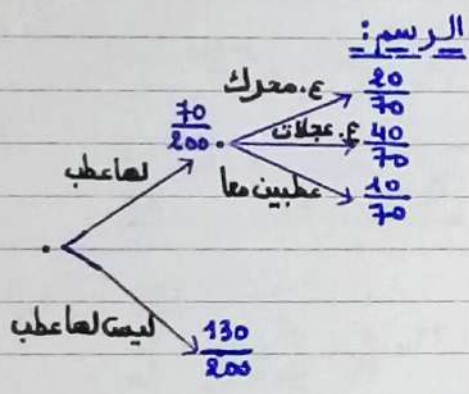 الرسم:
ع.محرك 20/70
70/200 ع.عجلات 40/70
لها عطب عطبين معا 10/70
ليست لها عطب 130/200